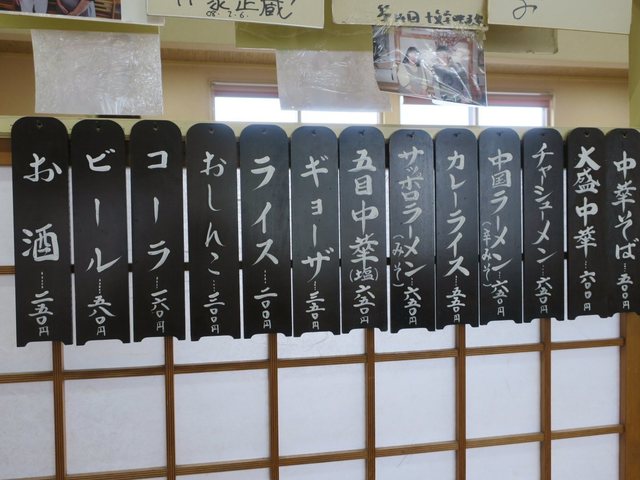 中華そば……五〇〇円
大盛中華……六〇〇円
チャーシューメン……六五〇円
中国ラーメン(辛みそ)……六五〇円
カレーライス……五五〇円
サッポロラーメン(みそ)……六五〇円
五目中華(塩)……六五〇円
ギョーザ……三五〇円
ライス……二〇〇円
おしんこ……三〇〇円
コーラ……一六〇円
ビール……五八〇円
お酒……二五〇円